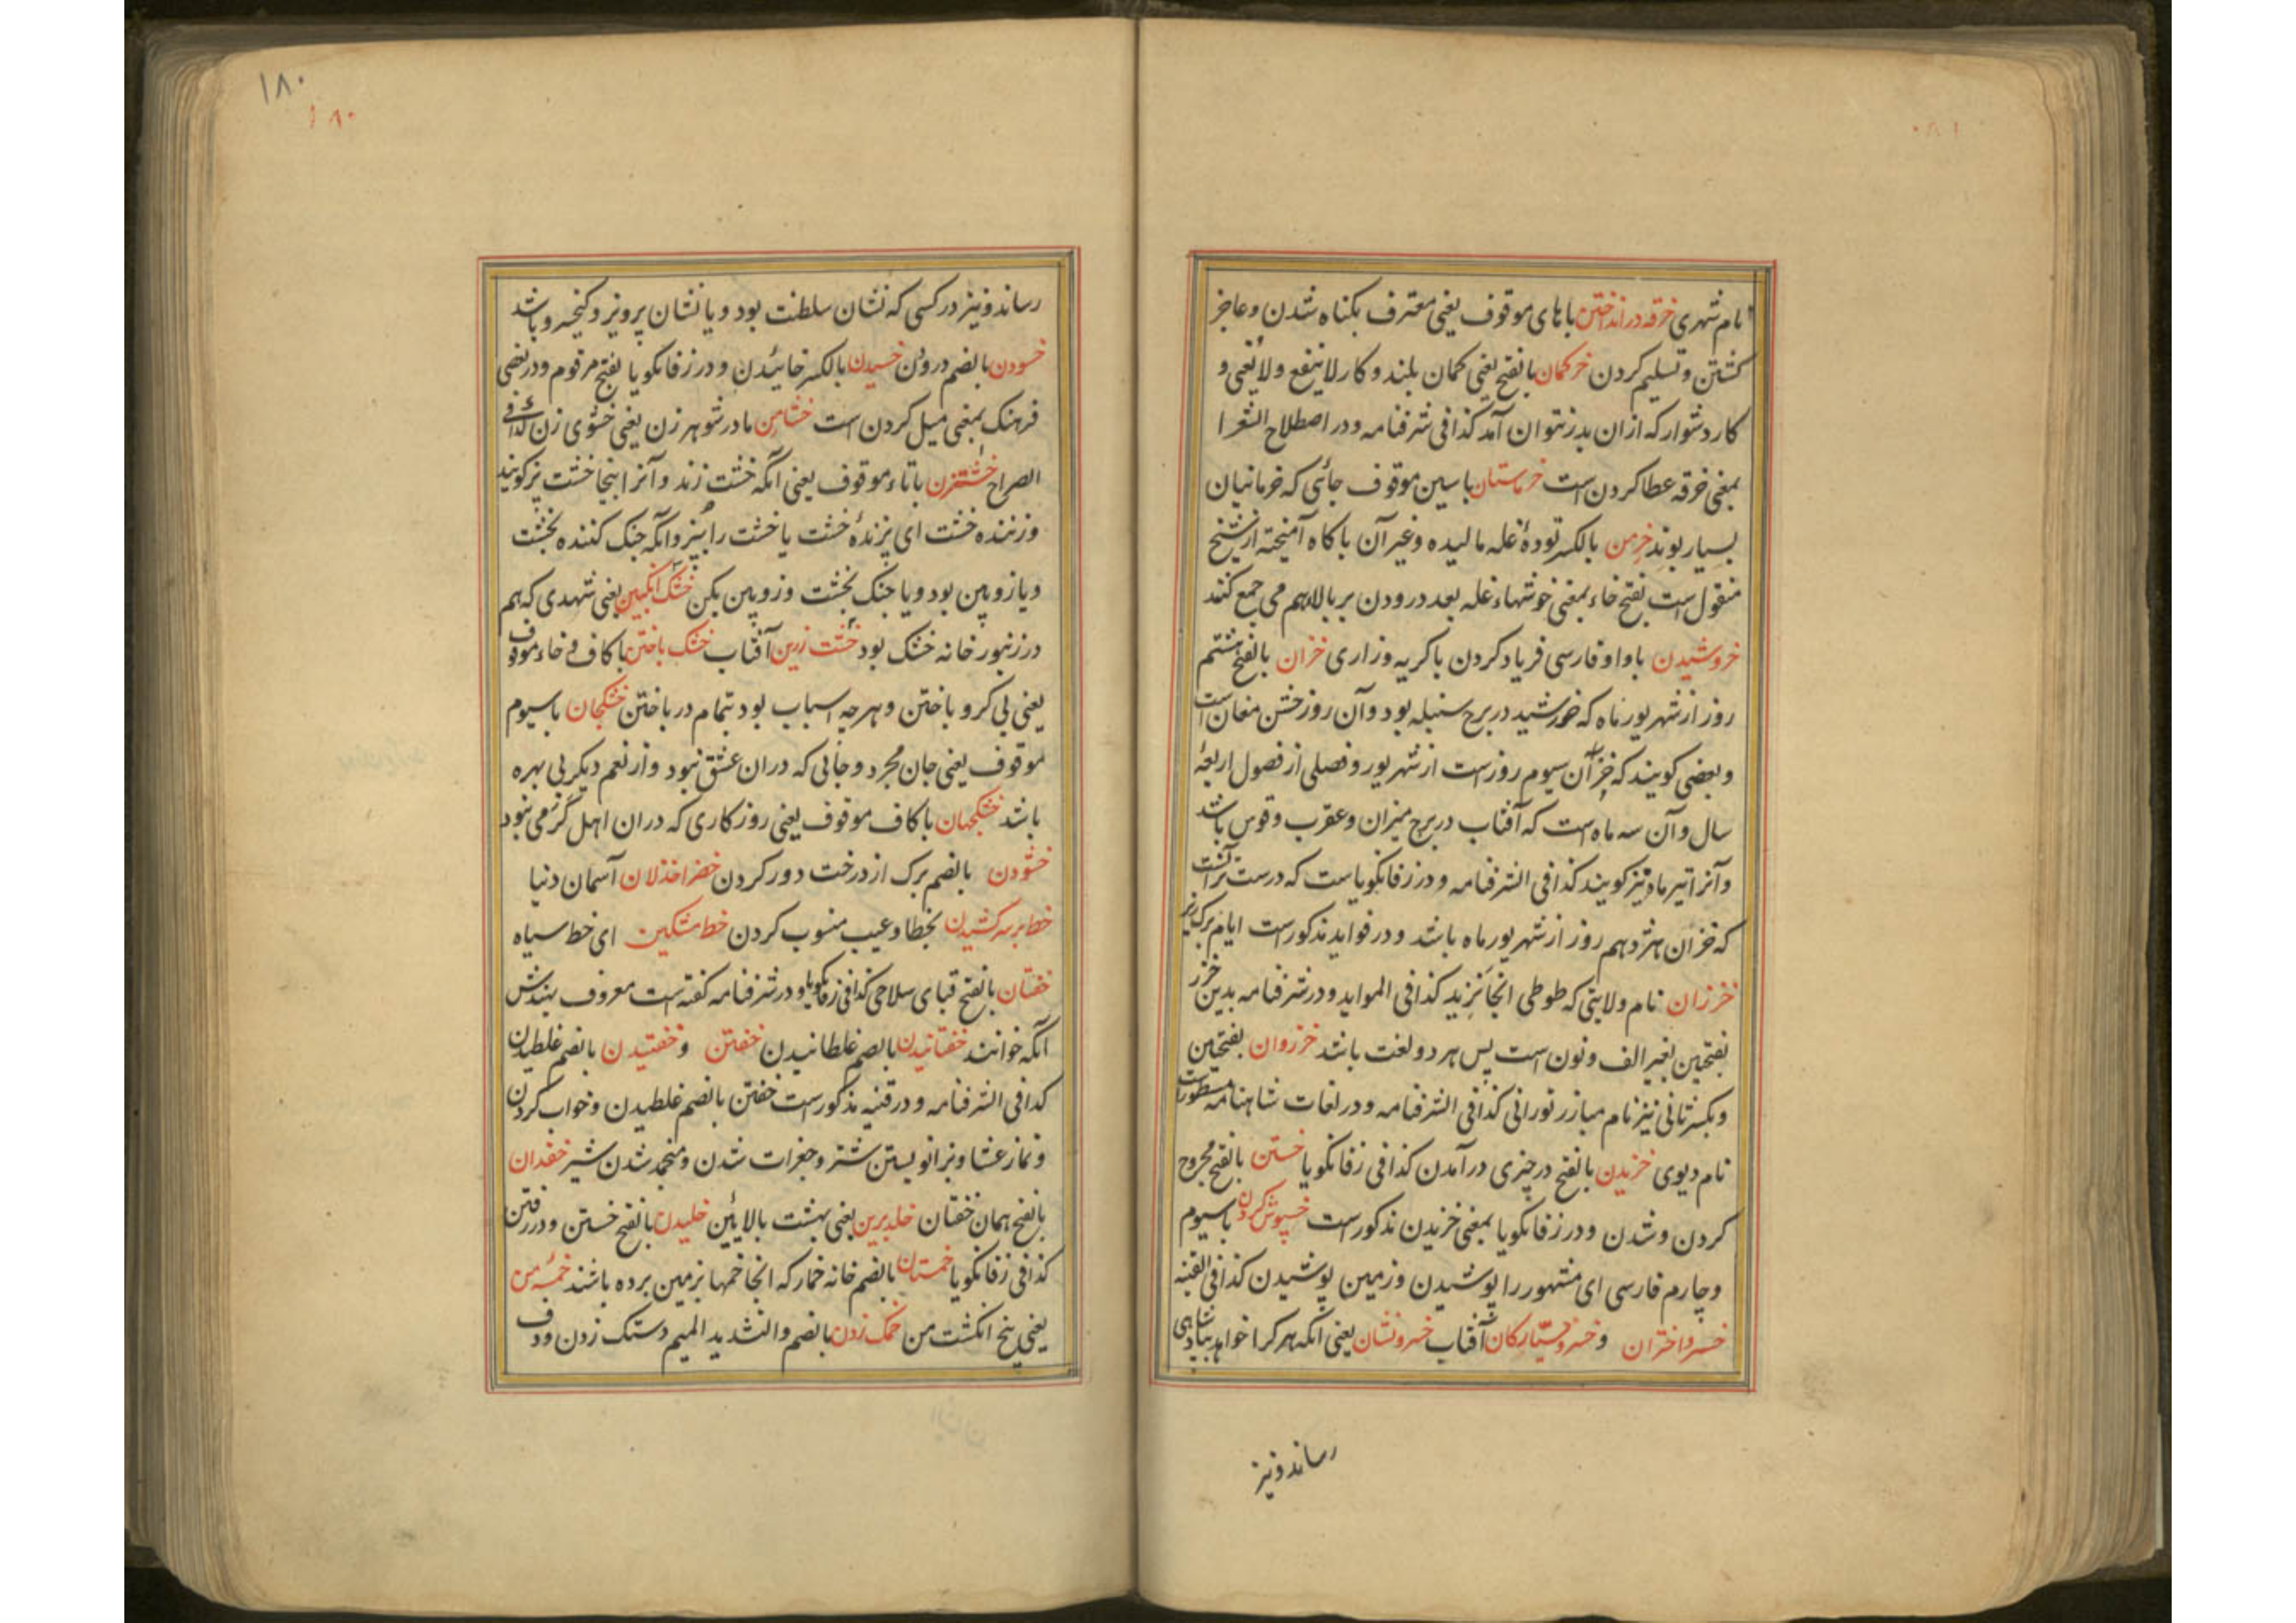 نام شهری خرقه در انداختن باهای موقوف یعنی معترف بکناه شدن و عاجز
کشتن و تسلیم کردن خرکمان بالفتح یعنی کمان بلند و کار لاینفع ولایعنی و
کار دشوار که از ان بدر نتوان آمد کذا فی شرفنامه و در اصطلاح الشعرا
بمعنی خرقه عطا کردن است خرماستان با سین موقوف جائی که خرمائیان
بسیار بوند خرمن بالکسر تودهٔ غله مالیده و غیر آن با کاه آمیخته از شیخ
منقول است بفتح خاء بمعنی خوشهاء غله بعد درودن بر بالا بهم می جمع کنند
خروشیدن با واو فارسی فریاد کردن با کریه و زاری خزان بالفتح هشتم
روز از شهریور ماه که خورشید در برج سنبله بود و آن روز جشن مغان است
و بعضی کویند که خزان سیوم روزست از شهریور و فصلی از فصول اربعهٔ
سال و آن سه ماه است که آفتاب در برج میزان و عقرب و قوس باشد
و آنرا تیر ماه نیز کویند کذا فی الشرفنامه و در زفانکویاست که درست تر آنست
که خزان هژدهم روز از شهریور ماه باشد و در فواید مذکورست ایام برک ریز
خزران نام ولایتی که طوطی انجا نزید کذا فی المواید و در شرفنامه بدین خزر
بفتحین بغیر الف و نون است پس هر دو لغت باشد خزروان بفتحین
و بکسر ثانی نیز نام مبارز تورانی کذا فی الشرفنامه و در لغات شاهنامه مسطورست
نام دیوی خزیدن بالفتح در چیزی در آمدن کذا فی زفانکویا خستن بالفتح مجروح
کردن و شدن و در زفانکویا بمعنی خزیدن مذکورست خسپوش کردن با سیوم
و چارم فارسی ای مشهور را پوشیدن و زمین پوشیدن کذا فی القنیه
خسرو اختران و خسرو سیارکان آفتاب خسرو نشان یعنی آنکه هر کرا خواهد بپادشاهی
رساند و نیز
۱۸۰
۱۸۰
رساند و نیز در کسی که نشان سلطنت بود و یا نشان پرویز و کیخسرو باشد
خسودن بالضم درودن خسیدن بالکسر خائیدن و در زفانکویا بفتح مرقوم و در بعضی
فرهنک بمعنی میل کردن است خشامن مادر شوهر زن یعنی خشوی زن کذا فی
الصراح خشتزن با تاء موقوف یعنی آنکه خشت زند و آنرا اینجا خشت پز کویند
و زننده خشت ای پزندهٔ خشت یا خشت را بپز و آنکه جنک کننده بخشت
و یا زوپین بود و یا جنک بخشت و زوپین بکن خشک انکبین یعنی شهدی که هم
در زنبور خانه خشک بود خشت زرین آفتاب خشک باختن با کاف و خاء موقوف
یعنی بی کرو باختن و هرچه اسباب بود بتمام در باختن خشکجان با سیوم
موقوف یعنی جان مجرد و جانی که دران عشق نبود و از نعم دیکر بی بهره
باشد خشکجهان با کاف موقوف یعنی روزکاری که دران اهل کرمی نبود
خشودن بالضم برک از درخت دور کردن خضرا خذلان آسمان دنیا
خط بر سر کشیدن بخطا و عیب منسوب کردن خط مشکین ای خط سیاه
خفتان بالفتح قبای سلاحی کذا فی زفانکویا و در شرفنامه کفته است معروف بندش
آنکه خوانند خفتانیدن بالضم غلطانیدن خفتن و خفتیدن بالضم غلطیدن
کذا فی الشرفنامه و در قنیه مذکورست خفتن بالضم غلطیدن و خواب کردن
و نماز عشا و بزانو بستن شتر و جغرات شدن و منجمد شدن شیر خفدان
بالفتح همان خفتان خلد برین یعنی بهشت بالایین خلیدن بالفتح خستن و در رفتن
کذا فی زفانکویا خمستان بالضم خانه خمار که انجا خمها بزمین برده باشند خمسهٔ من
یعنی پنج انکشت من خمک زدن بالضم والتشدید المیم دستک زدن و دف